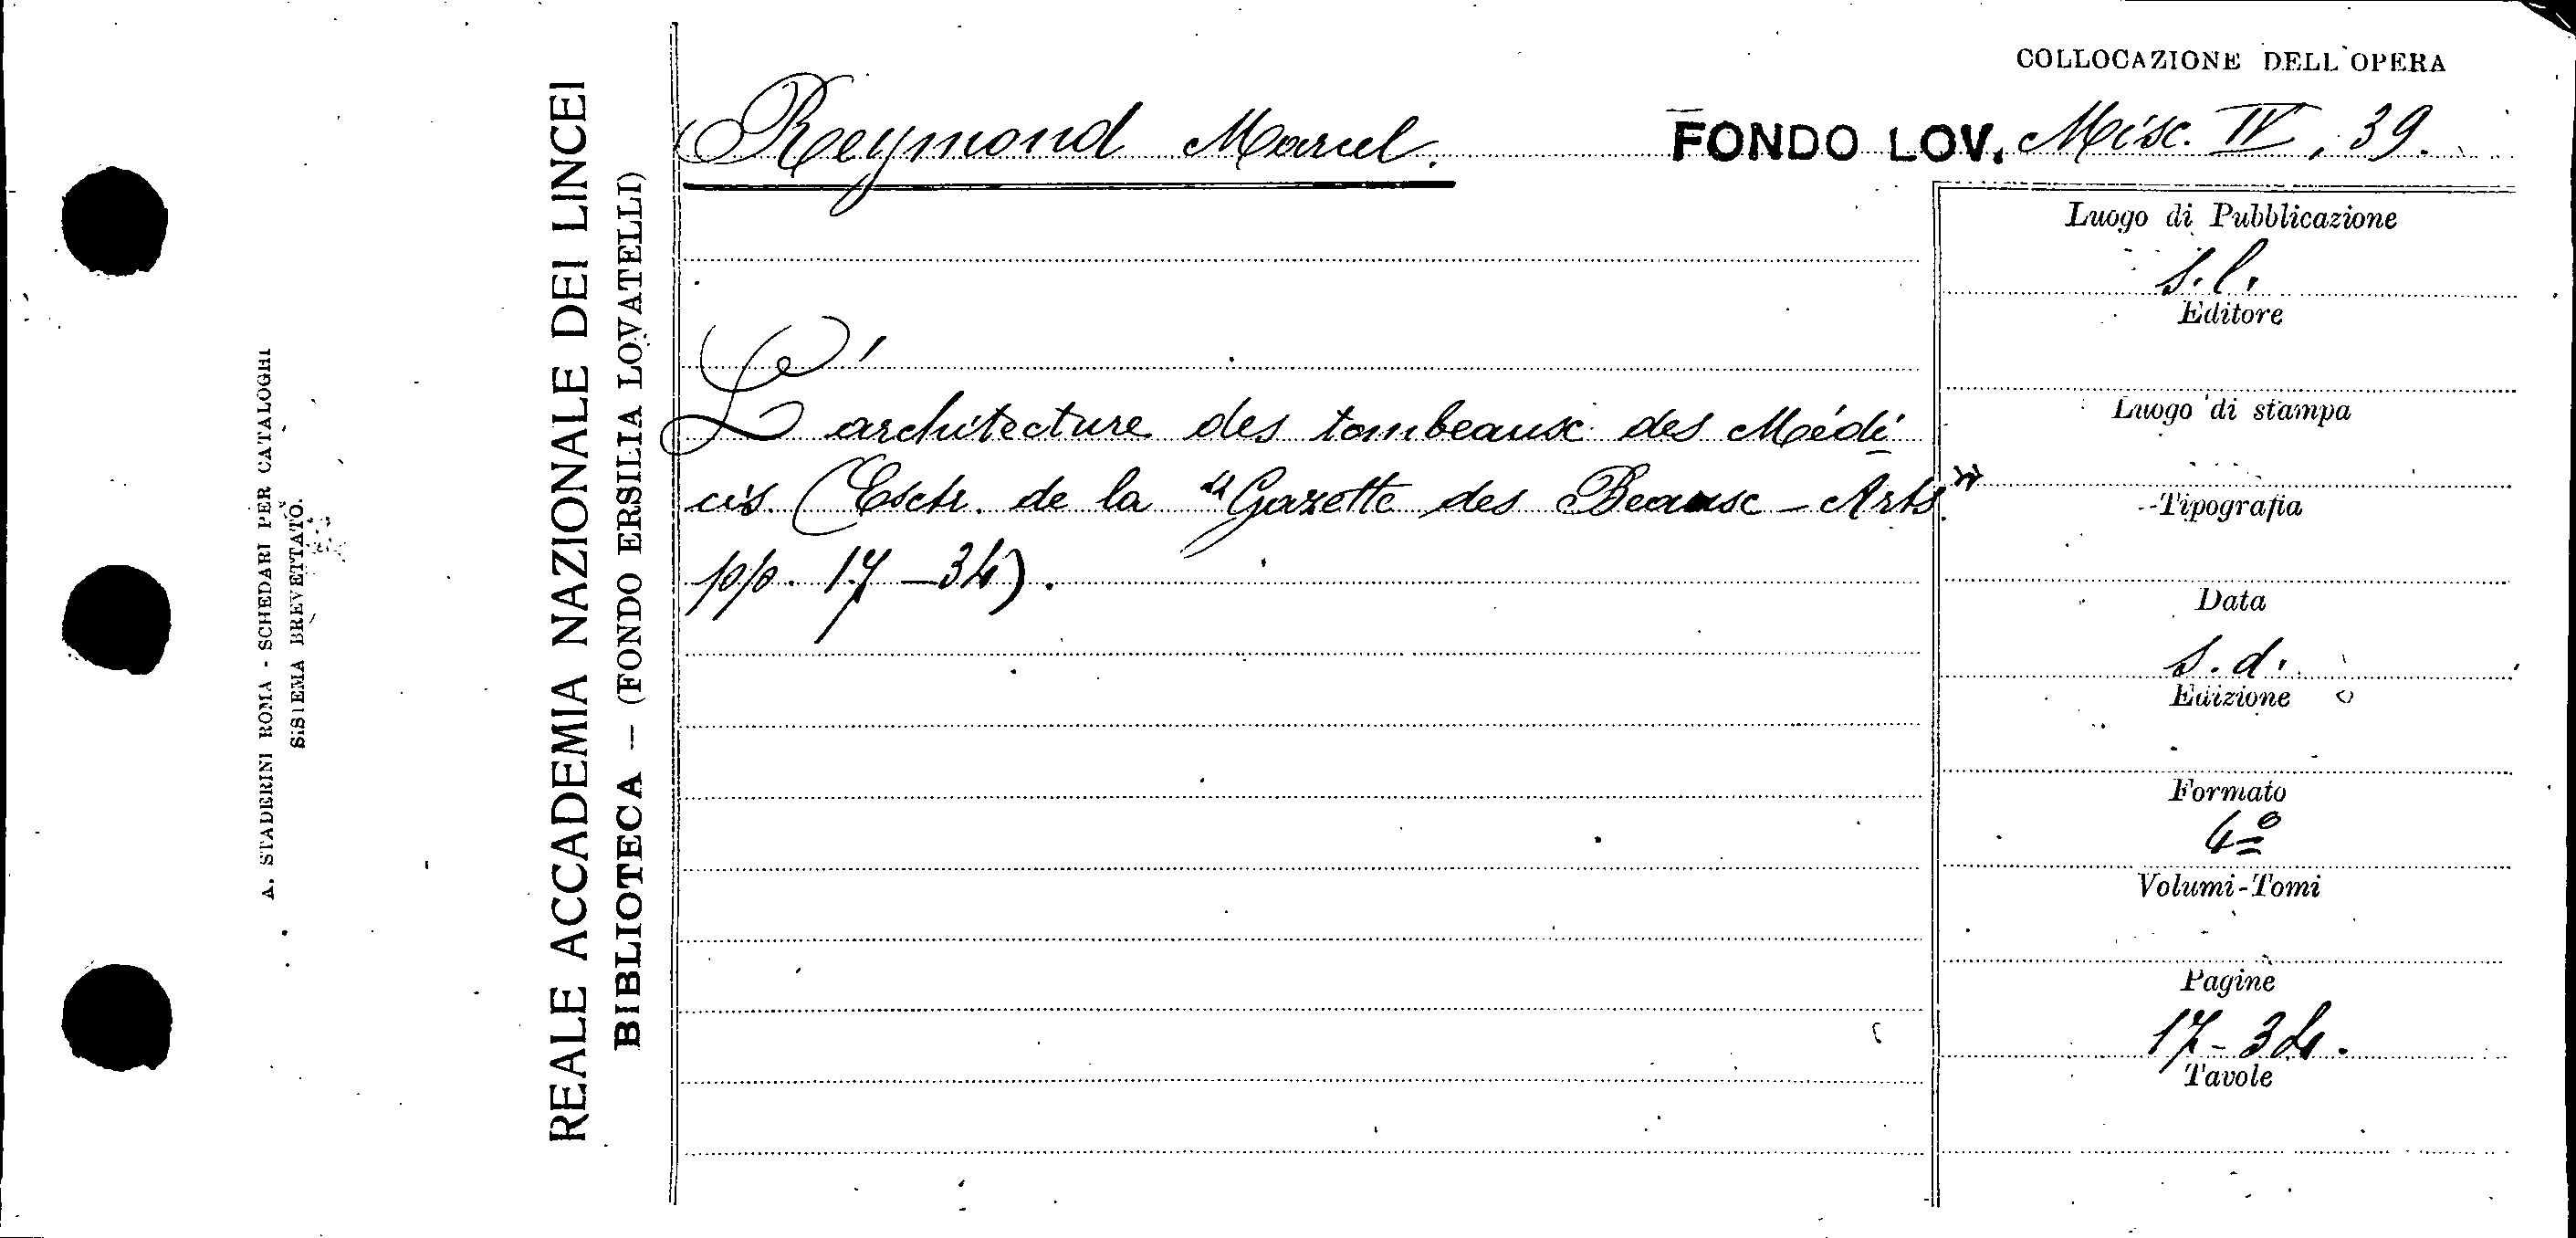 COLLOCAZIONE DELL'OPERA
Reymond Marcel.
FONDO LOV. Misc. IV, 39.
L'architecture des tombeaux des Médi
cis (Extr. de la "Gazette des Beaux-Arts"
pp. 17-34).
Luogo di Pubblicazione
s.l.
Editore
Luogo di stampa
Tipografia
Data
s.d.
Edizione
Formato
4º
Volumi-Tomi
Pagine
17-34.
Tavole
REALE ACCADEMIA NAZIONALE DEI LINCEI
BIBLIOTECA — (FONDO ERSILIA LOVATELLI)
A. STADERINI ROMA - SCHEDARI PER CATALOGHI
SISTEMA BREVETTATO.